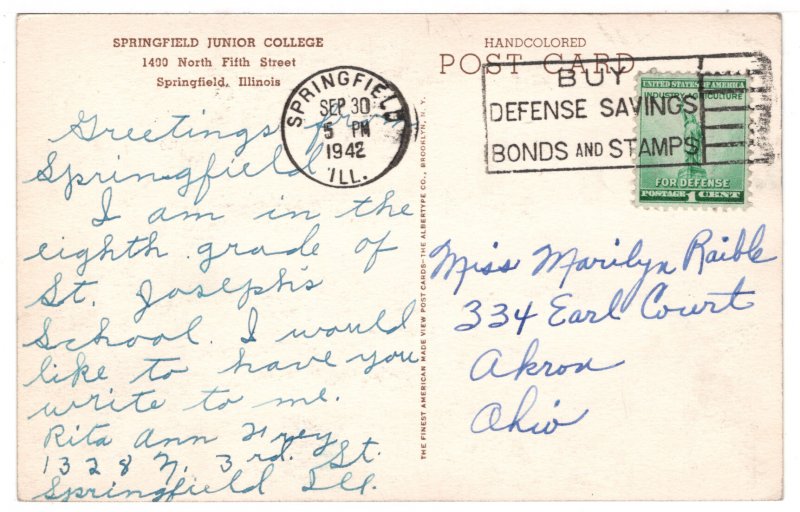 SPRINGFIELD JUNIOR COLLEGE
1400 North Fifth Street
Springfield, Illinois
HANDCOLORED
POST CARD
SPRINGFIELD
SEP 30
5 PM
1942
ILL.
BUY
DEFENSE SAVINGS
BONDS AND STAMPS
UNITED STATES OF AMERICA
INDUSTRY AGRICULTURE
FOR DEFENSE
POSTAGE 1 CENT
Greetings from
Springfield
I am in the
eighth grade of
St. Joseph's
School. I would
like to have you
write to me.
Rita Ann Frey
1328 N. 3rd. St.
Springfield Ill.
THE FINEST AMERICAN MADE VIEW POST CARDS—THE ALBERTYPE CO., BROOKLYN, N.Y.
Miss Marilyn Raible
334 Earl Court
Akron
Ohio